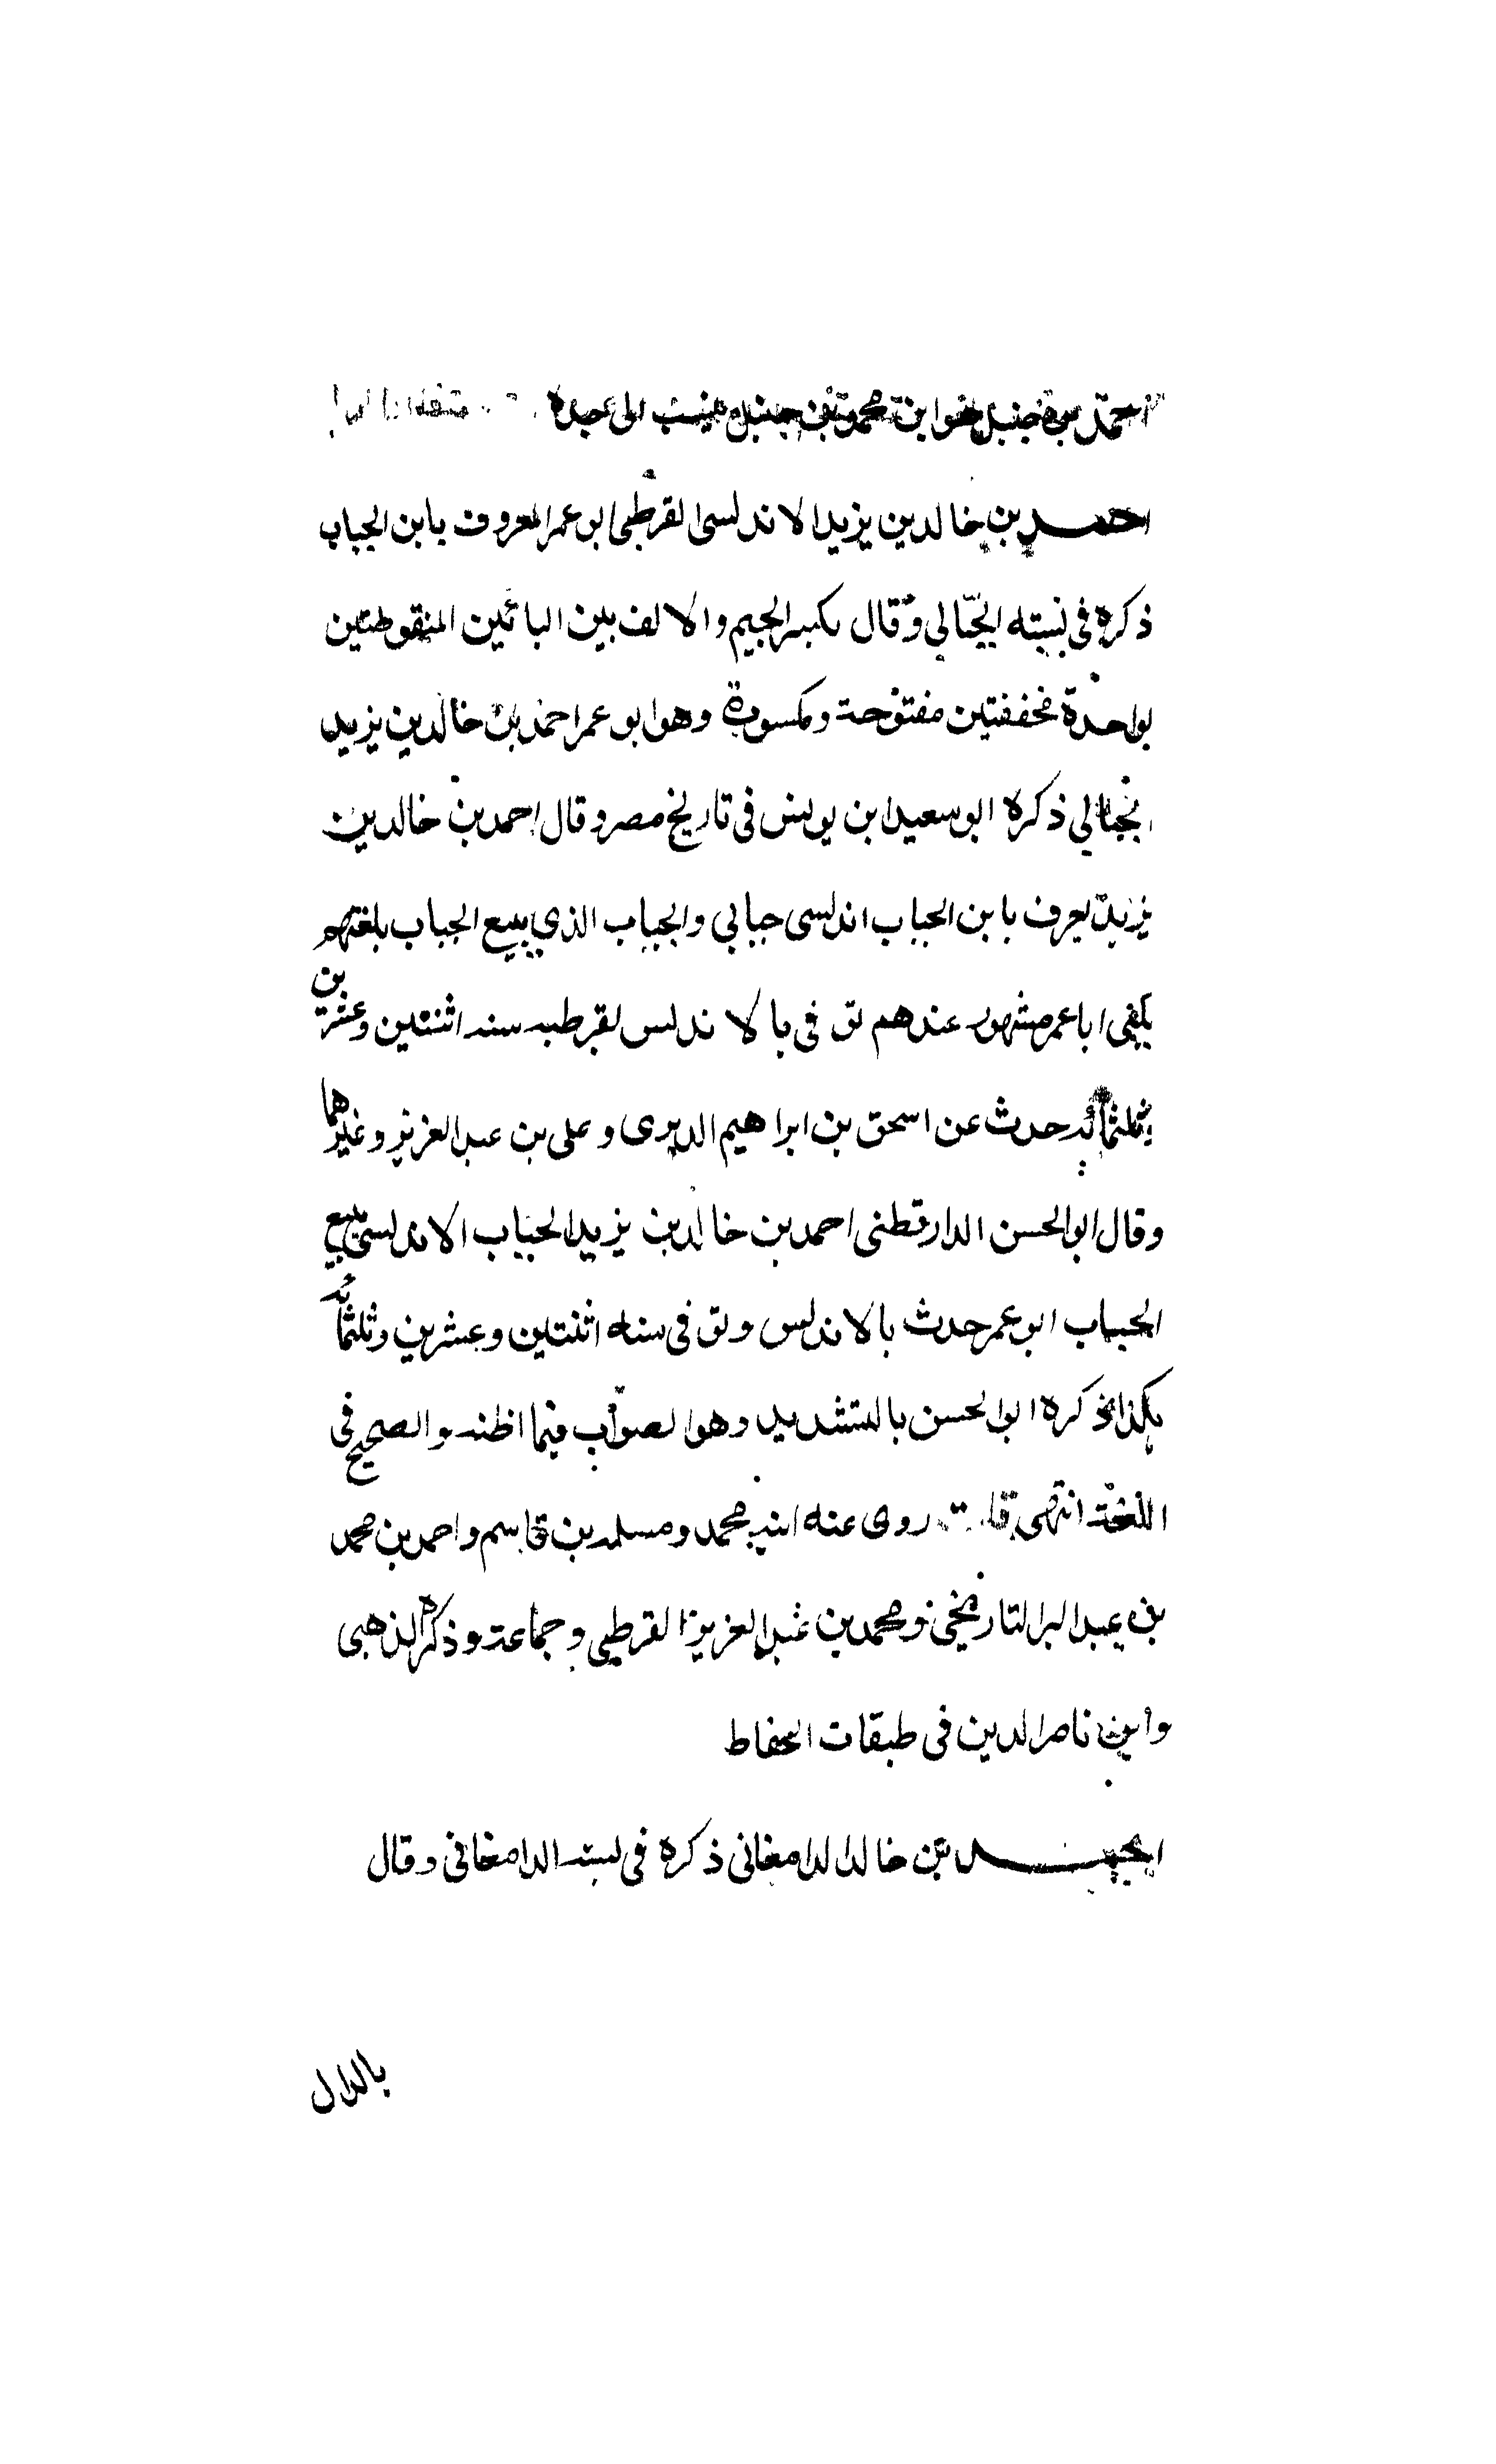 احمد بن حنبل هو ابن محمد بن حنبل ينسب الى جده
احمد بن خالد بن يزيد الاندلسى القرطبى ابو عمر المعروف بابن الجباب
ذكره فى نسبته الجبابي وقال بكسر الجيم والالف بين البائين المنقوطتين
بواحدة مخففتين مفتوحة ومكسورة وهو ابو عمر احمد بن خالد بن يزيد
الجبابي ذكره ابو سعيد ابن يونس فى تاريخ مصر وقال احمد بن خالد بن
يزيد يعرف بابن الجباب اندلسى جبابي والجباب الذي يبيع الجباب بلغتهم
يكنى ابا عمر مشهور عندهم توفى بالاندلس بقرطبه سنه اثنتين وعشرين
وثلثمائه حدث عن اسحق بن ابراهيم الدبرى وعلى بن عبد العزيز وغيرهما
وقال ابو الحسن الدارقطنى احمد بن خالد بن يزيد الجباب الاندلسى يبيع
الجباب ابو عمر حدث بالاندلس وتوفى سنه اثنتين وعشرين وثلثمائه
هكذا ذكره ابو الحسن بالتشديد وهو الصواب فيما اظنه والصحيح فى
اللغة انتهى قلت روى عنه ابنه محمد ومسلمه بن قاسم واحمد بن محمد
بن عبد البر التاريخي ومحمد بن عبد العزيز القرطبي وجماعة وذكره الذهبى
وابن ناصر الدين فى طبقات الحفاظ
احمد بن خالد الدامغانى ذكره فى نسبته الدامغانى وقال
بالدال